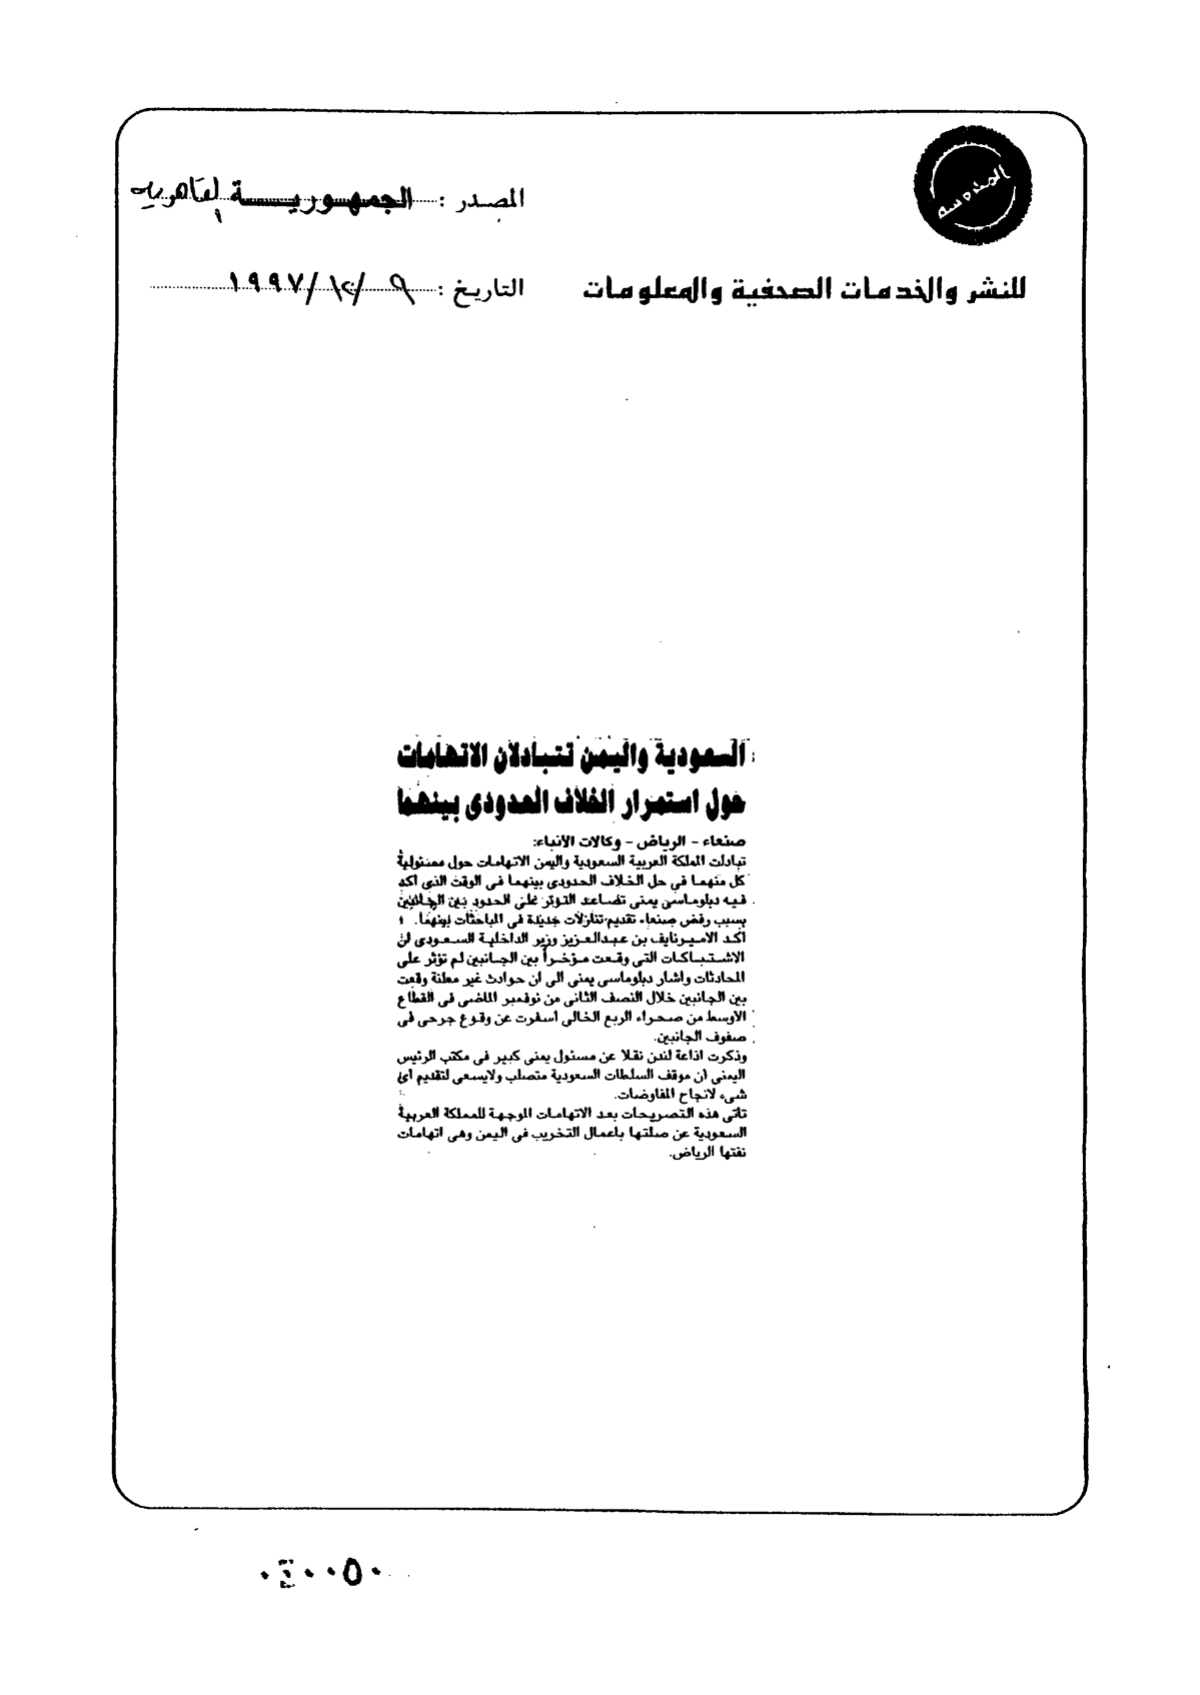 المصدر : الجمهورية القاهرية
للنشر والخدمات الصحفية والمعلومات
التاريخ : ٩ /١٢/ ١٩٩٧
السعودية واليمن تتبادلان الاتهامات
حول استمرار الخلاف الحدودى بينهما
صنعاء - الرياض - وكالات الأنباء:
تبادلت المملكة العربية السعودية واليمن الاتهامات حول مسئولية
كل منهما فى حل الخلاف الحدودى بينهما فى الوقت الذى اكد
فيه دبلوماسى يمنى تصاعد التوتر على الحدود بين الجانبين
بسبب رفض صنعاء تقديم تنازلات جديدة فى المباحثات بينهما.
اكد الامير نايف بن عبدالعزيز وزير الداخلية السعودى ان
الاشتباكات التى وقعت مؤخراً بين الجانبين لم تؤثر على
المحادثات واشار دبلوماسى يمنى الى ان حوادث غير معلنة وقعت
بين الجانبين خلال النصف الثانى من نوفمبر الماضى فى القطاع
الاوسط من صحراء الربع الخالى أسفرت عن وقوع جرحى فى
صفوف الجانبين.
وذكرت اذاعة لندن نقلا عن مسئول يمنى كبير فى مكتب الرئيس
اليمنى أن موقف السلطات السعودية متصلب ولايسعى لتقديم أى
شىء لانجاح المفاوضات.
تأتى هذه التصريحات بعد الاتهامات الموجهة للمملكة العربية
السعودية عن صلتها باعمال التخريب فى اليمن وهى اتهامات
نفتها الرياض.